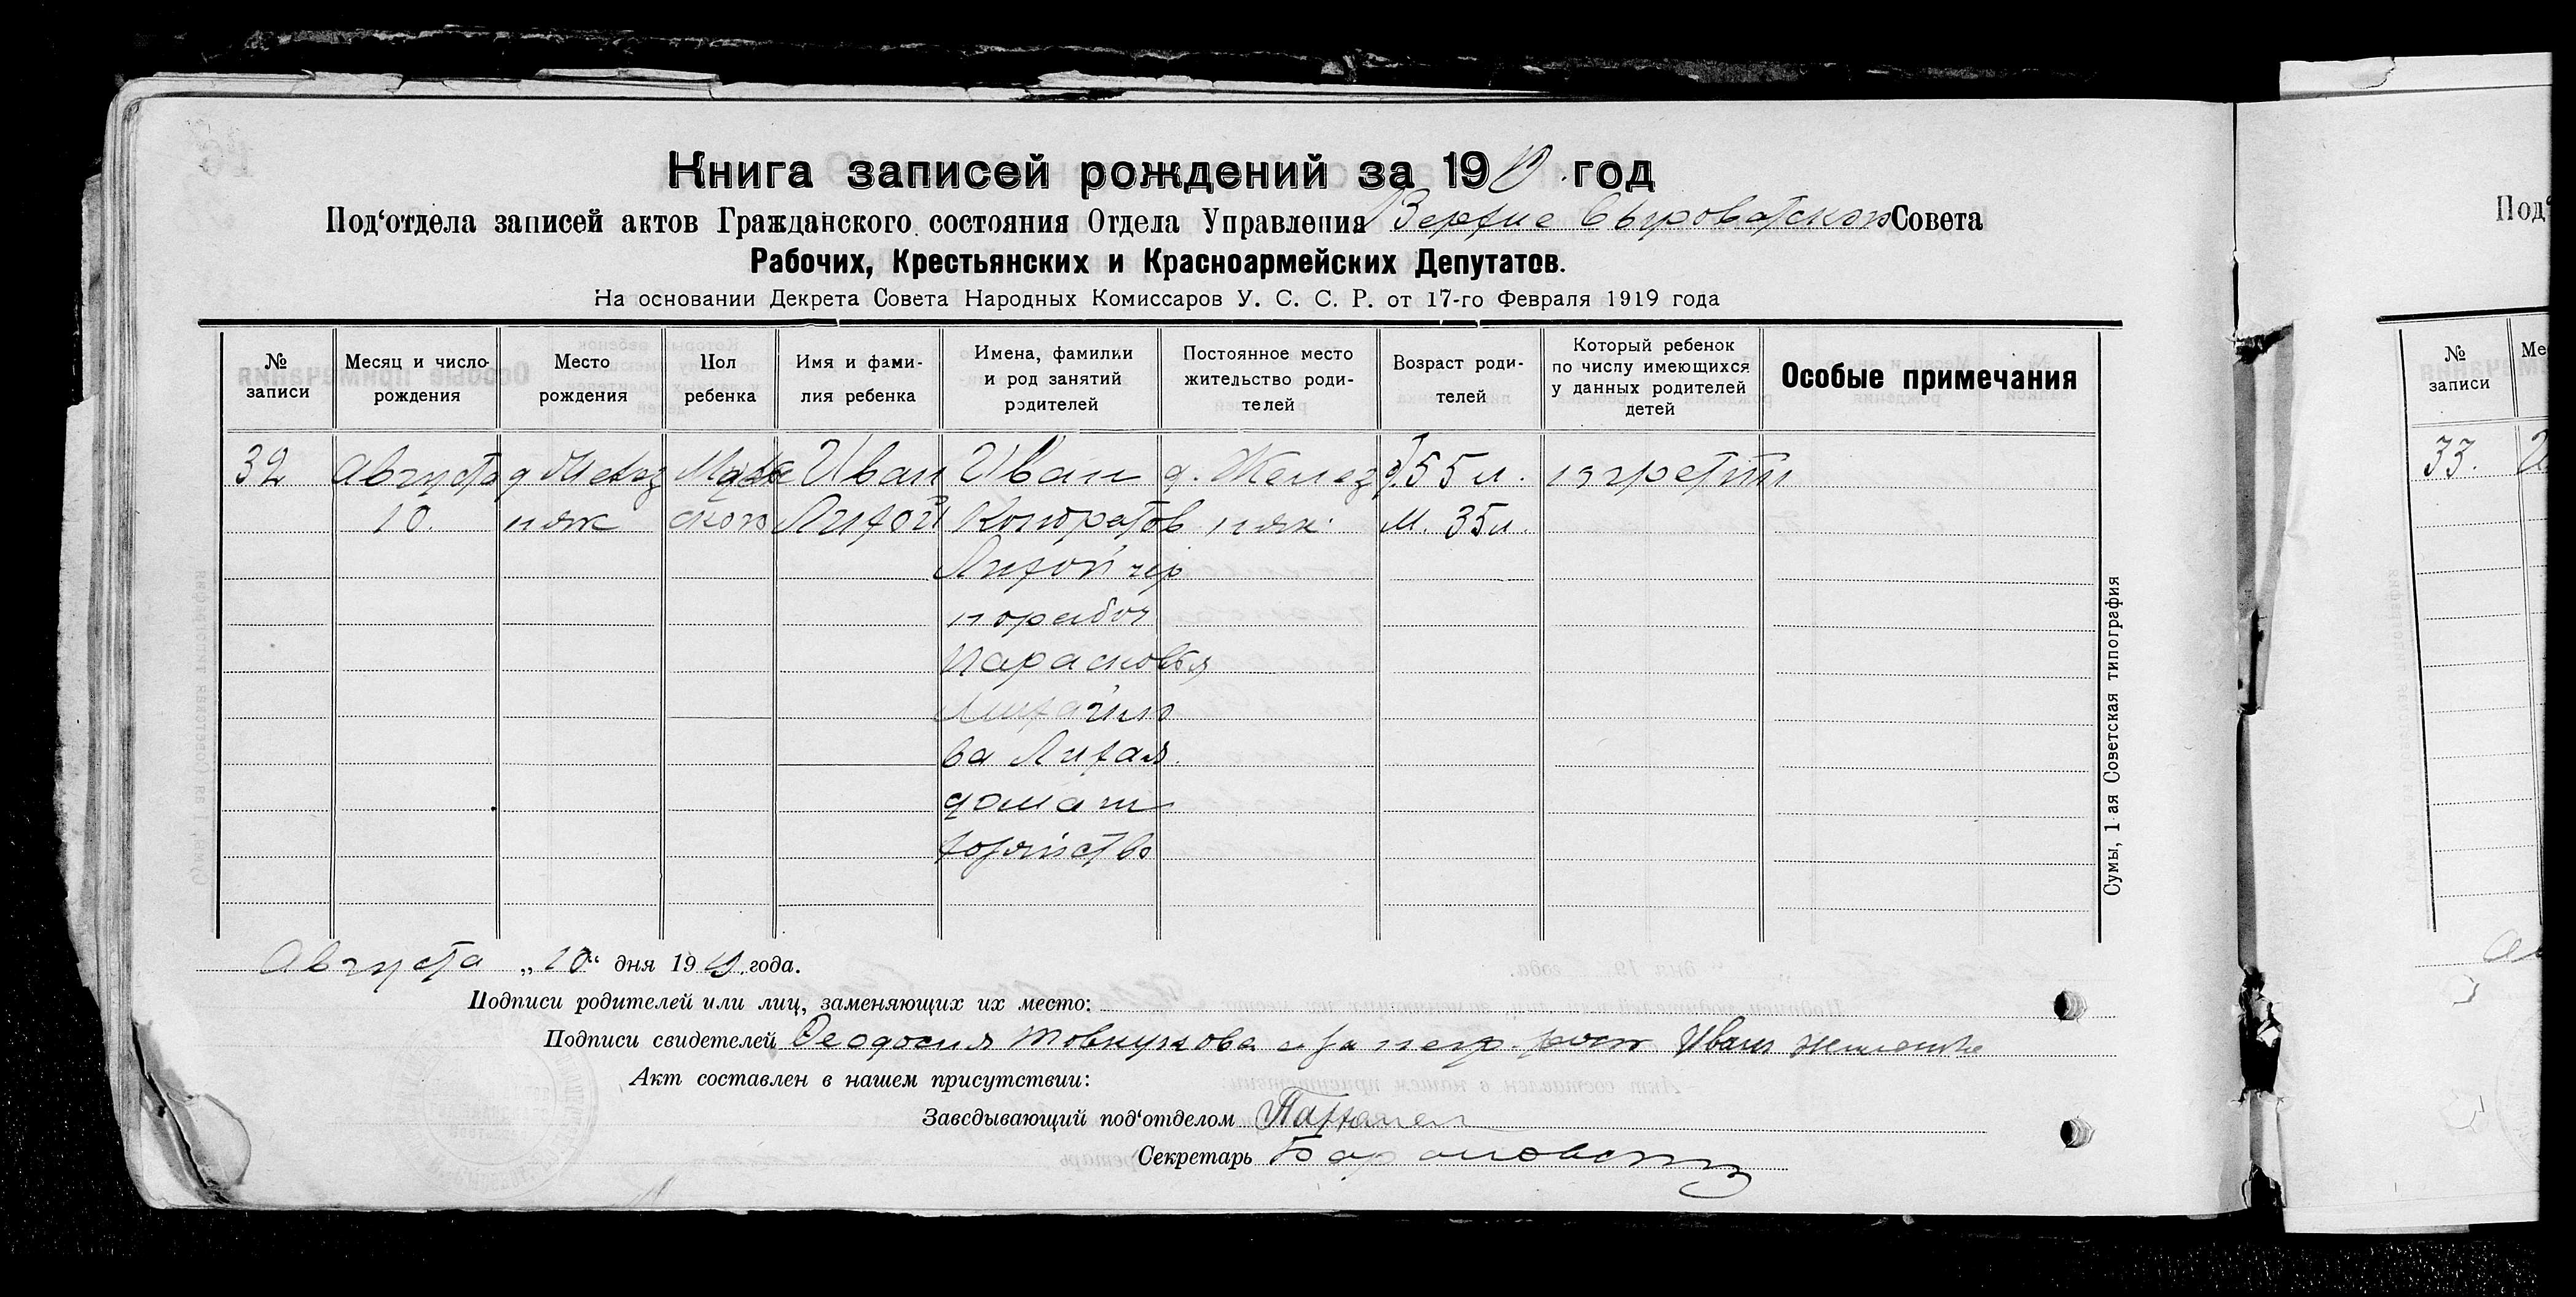 Книга записей рождений за 19 год
Под‘отдела записей актов Гражданского состояния Отдела Управления Верхне Сыроватского Совета
Рабочих, Крестьянских и Красноармейских Депутатов.
На основании Декрета Совета Народных Комиссаров У. С. С. Р. от 17-го Февраля 1919 года
№ записи
Месяц и число рождения
Место рождения
Пол ребенка
Имя и фамилия ребенка
Имена, фамилии и род занятий родителей
Постоянное место жительство родителей
Возраст родителей
Который ребенок по числу имеющихся у данных родителей детей
Особые примечания
32 Августа д Мужс Иван Иван д. Желез 55 л. третий
10. няк ского Лихой Кондратов няк. М. 35 л.
Лихой чер
норабоч
Парасковья
Михайло
ва Лихая
домаш
хозяйство
Августа „10“ дня 1919 года.
Подписи родителей или лиц, заменяющих их место:
Подписи свидетелей Феодосия Иван
Акт составлен в нашем присутствии:
Заведывающий под‘отделом
Секретарь Барановский
Сумы, 1-ая Советская типография
Под‘
№ записи
Ме
33.